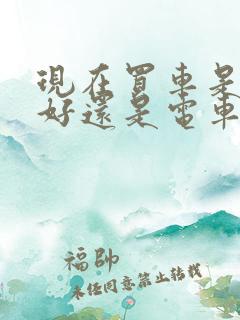 現在買車是
好還是電車
福帥
未经同意禁止转载